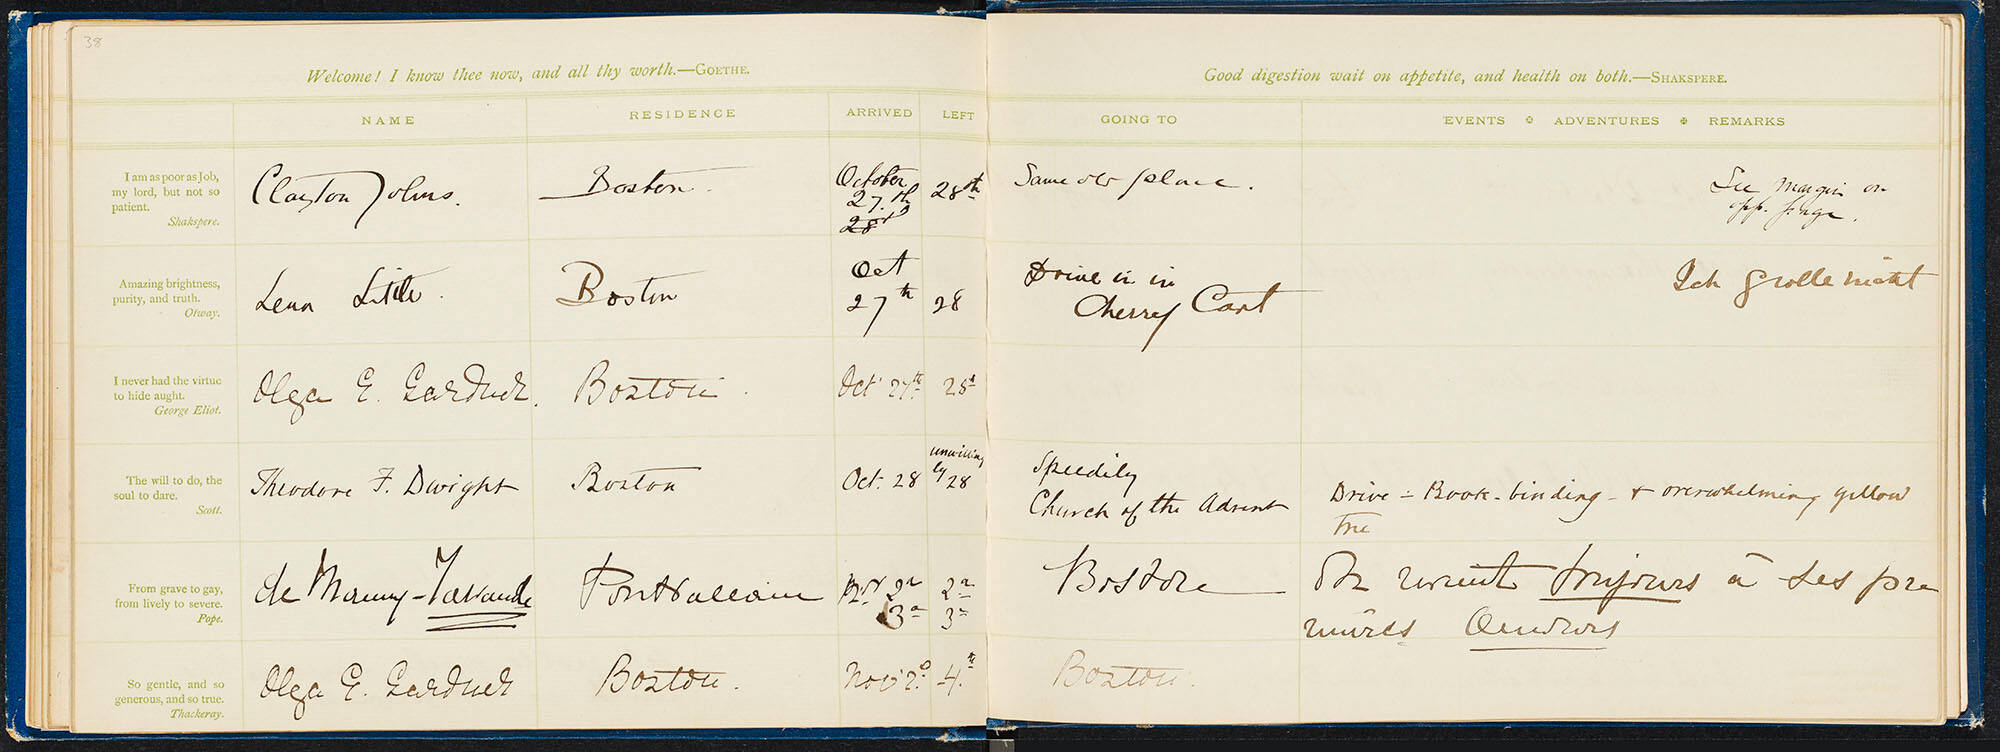 38
Welcome! I know thee now, and all thy worth.—GOETHE.
NAME RESIDENCE ARRIVED LEFT
I am as poor as Job,
my lord, but not so
patient.
Shakspere.
Clayton Johns. Boston. October
27.th
28th
28th
Amazing brightness,
purity, and truth.
Otway.
Lena Little. Boston Oct
27th 28
I never had the virtue
to hide aught.
George Eliot.
Olga E. Gardner. Boston. Oct 27th 28th
The will to do, the
soul to dare.
Scott.
Theodore F. Dwight Boston Oct. 28 unwilling
ly 28
From grave to gay,
from lively to severe.
Pope.
de Manny-Talvande Nov 2d 2d
3d 3d
So gentle, and so
generous, and so true.
Thackeray.
Olga E. Gardner Boston. Nov 2d 4th
Good digestion wait on appetite, and health on both.—SHAKSPERE.
GOING TO EVENTS ✠ ADVENTURES ✠ REMARKS
Same old place. See margin on
opp. page.
Drive in in
Cherry Cart Ich grolle nicht
Speedily
Church of the Advent Drive - Book-binding - & overwhelming yellow
tree
Boston On revient toujours à ses pre
mières amours
Boston.